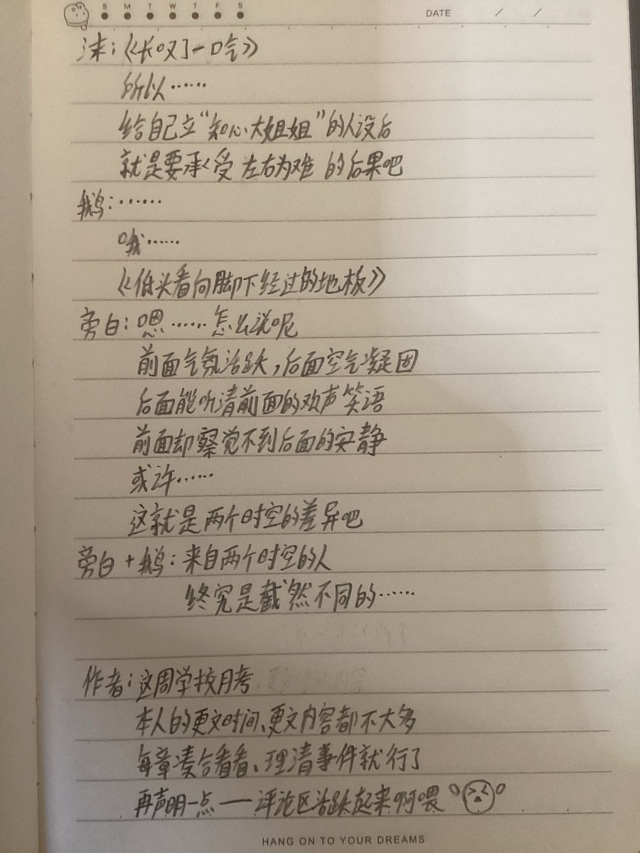 S M T W T F S
DATE / /
沫：《长叹了一口气》
所以……
给自己立“知心大姐姐”的人设后
就是要承受左右为难 的后果吧
鹅：……
哦……
《低头看向脚下经过的地板》
旁白：嗯……怎么说呢
前面气氛活跃，后面空气凝固
后面能听清前面的欢声笑语
前面却察觉不到后面的安静
或许……
这就是两个时空的差异吧
旁白+鹅：来自两个时空的人
终究是截然不同的……
作者：这周学校月考
本人的更文时间、更文内容都不大多
每章凑合看看、理清事件就行了
再声明一点——评论区活跃起来啊喂
HANG ON TO YOUR DREAMS